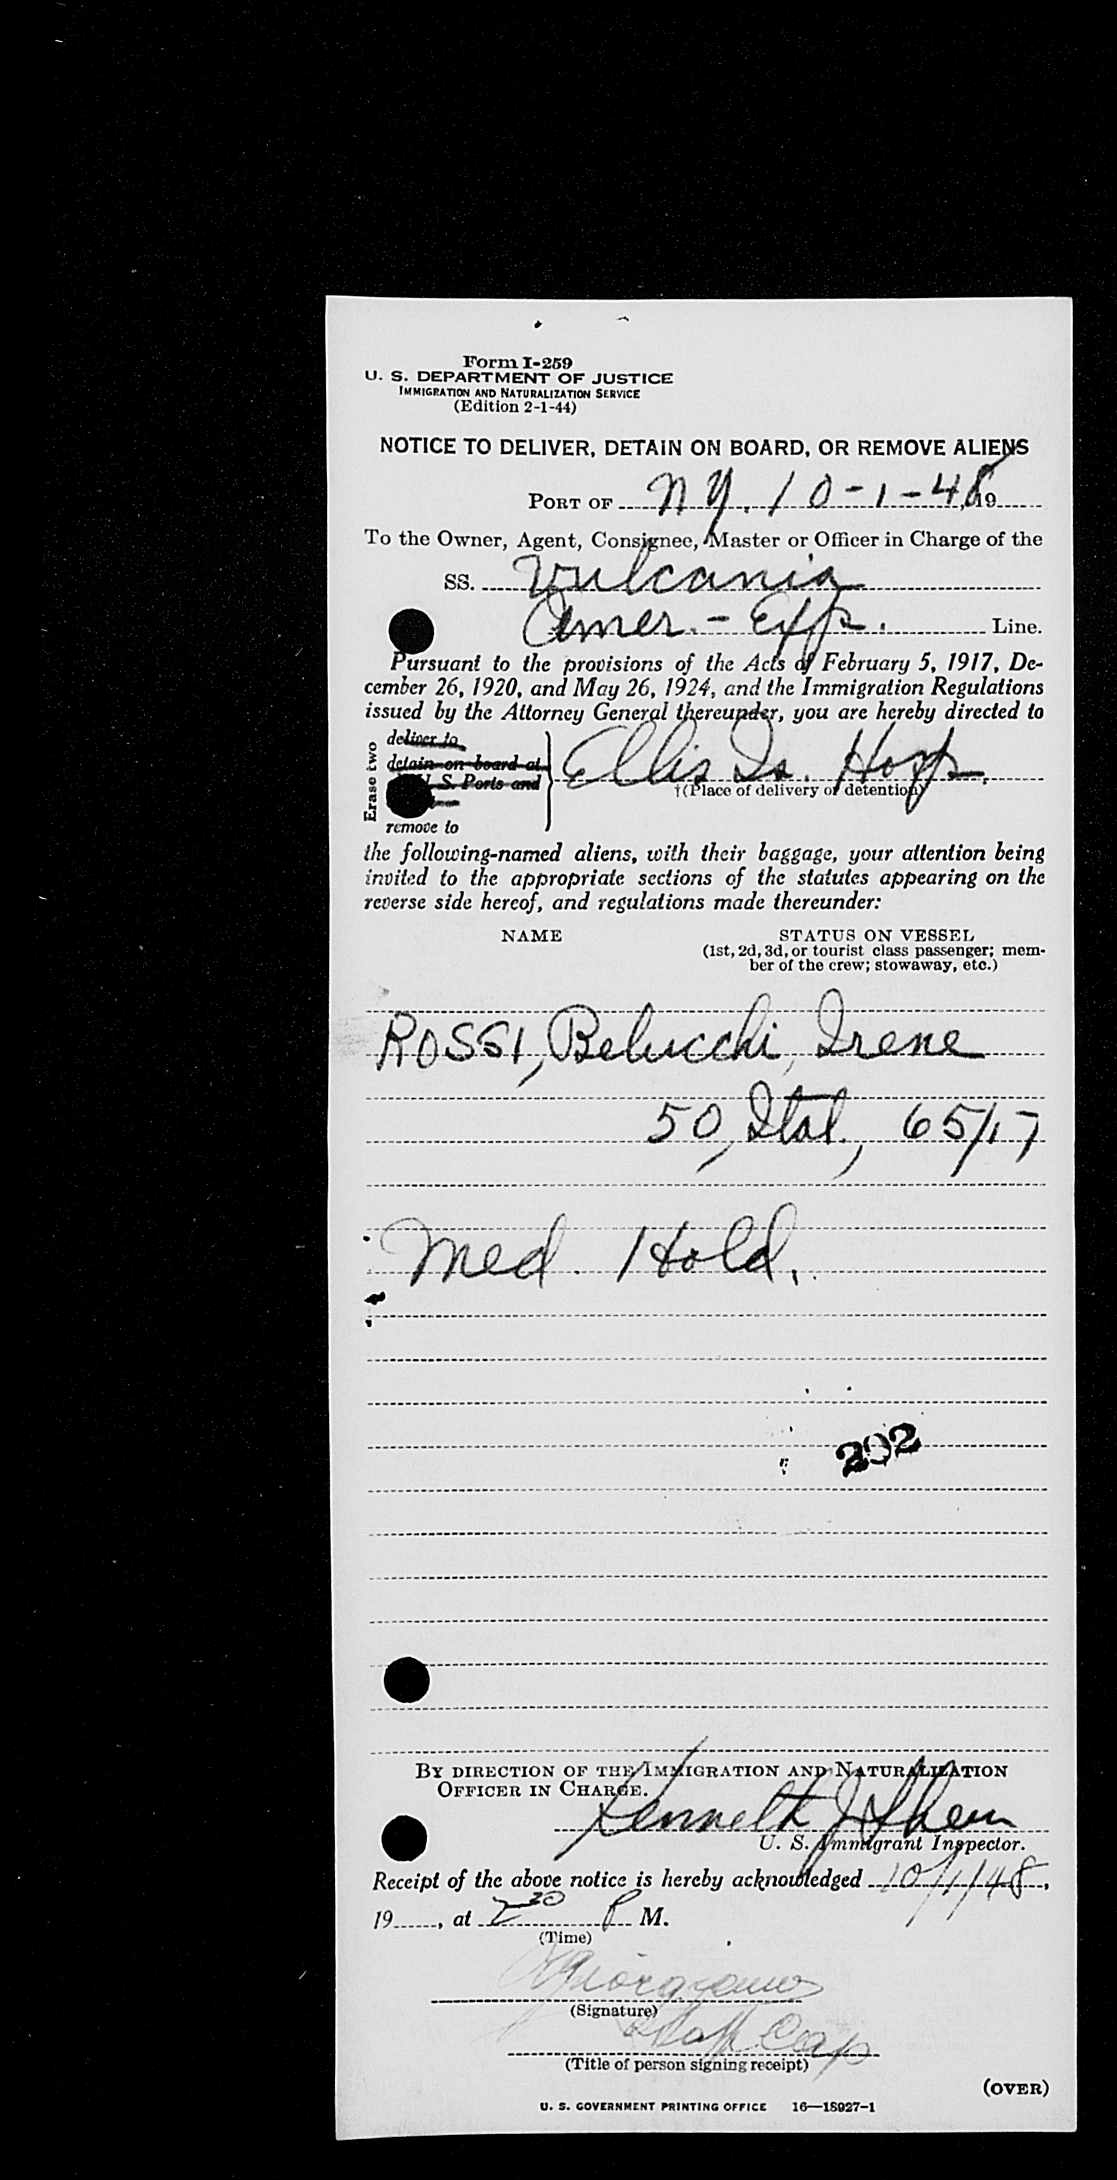 Form I-259
U. S. DEPARTMENT OF JUSTICE
IMMIGRATION AND NATURALIZATION SERVICE
(Edition 2-1-44)
NOTICE TO DELIVER, DETAIN ON BOARD, OR REMOVE ALIENS
PORT OF NY. 10-1-48, 19
To the Owner, Agent, Consignee, Master or Officer in Charge of the
SS. Vulcania
Amer.-Exp. Line.
Pursuant to the provisions of the Acts of February 5, 1917, De-
cember 26, 1920, and May 26, 1924, and the Immigration Regulations
issued by the Attorney General thereunder, you are hereby directed to
Erase two
deliver to
detain on board at
U. S. Ports and
remove to
Ellis Is. Hosp.
†(Place of delivery or detention)
the following-named aliens, with their baggage, your attention being
invited to the appropriate sections of the statutes appearing on the
reverse side hereof, and regulations made thereunder:
NAME STATUS ON VESSEL
(1st, 2d, 3d, or tourist class passenger; mem-
ber of the crew; stowaway, etc.)
ROSSI, Belucchi, Irene
50, Ital., 65/17
Med. Hold.
202
BY DIRECTION OF THE IMMIGRATION AND NATURALIZATION
OFFICER IN CHARGE.
Kenneth J
U. S. Immigrant Inspector.
Receipt of the above notice is hereby acknowledged 10/1/48,
19, at 2 20 P M.
(Time)
(Signature)
Staff Cap
(Title of person signing receipt)
(OVER)
U. S. GOVERNMENT PRINTING OFFICE 16—18927-1